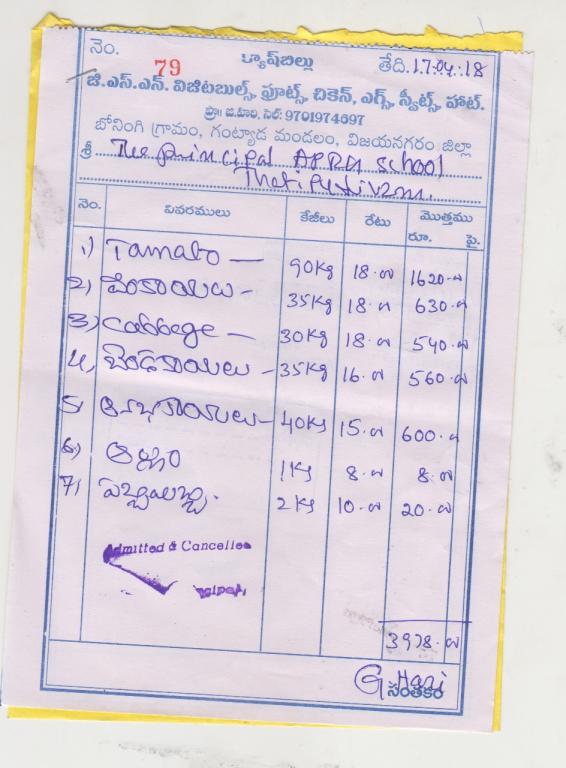 నెం. 79 క్యాష్‌బిల్లు తేది. 17.04.18
జి.ఎస్.ఎన్. విజిటబుల్స్, ఫ్రూట్స్, చికెన్, ఎగ్స్, స్వీట్స్, హాట్.
ప్రొ॥ జి.హరి, సెల్: 9701974697
బోనింగి గ్రామం, గంట్యాడ మండలం, విజయనగరం జిల్లా
శ్రీ The principal APRG school
నెం. వివరములు కేజీలు రేటు మొత్తము
రూ. పై.
1) Tamato — 90Kg 18.00 1620.00
2) వంకాయలు - 35Kg 18.00 630.00
3) cabbege — 30Kg 18.00 540.00
4) బెండకాయలు - 35Kg 16.00 560.00
5) 40Kg 15.00 600.00
6) అల్లం 1Kg 8.00 8.00
7) 2Kg 10.00 20.00
Admitted & Cancelled
3978.00
G Hari
సంతకం